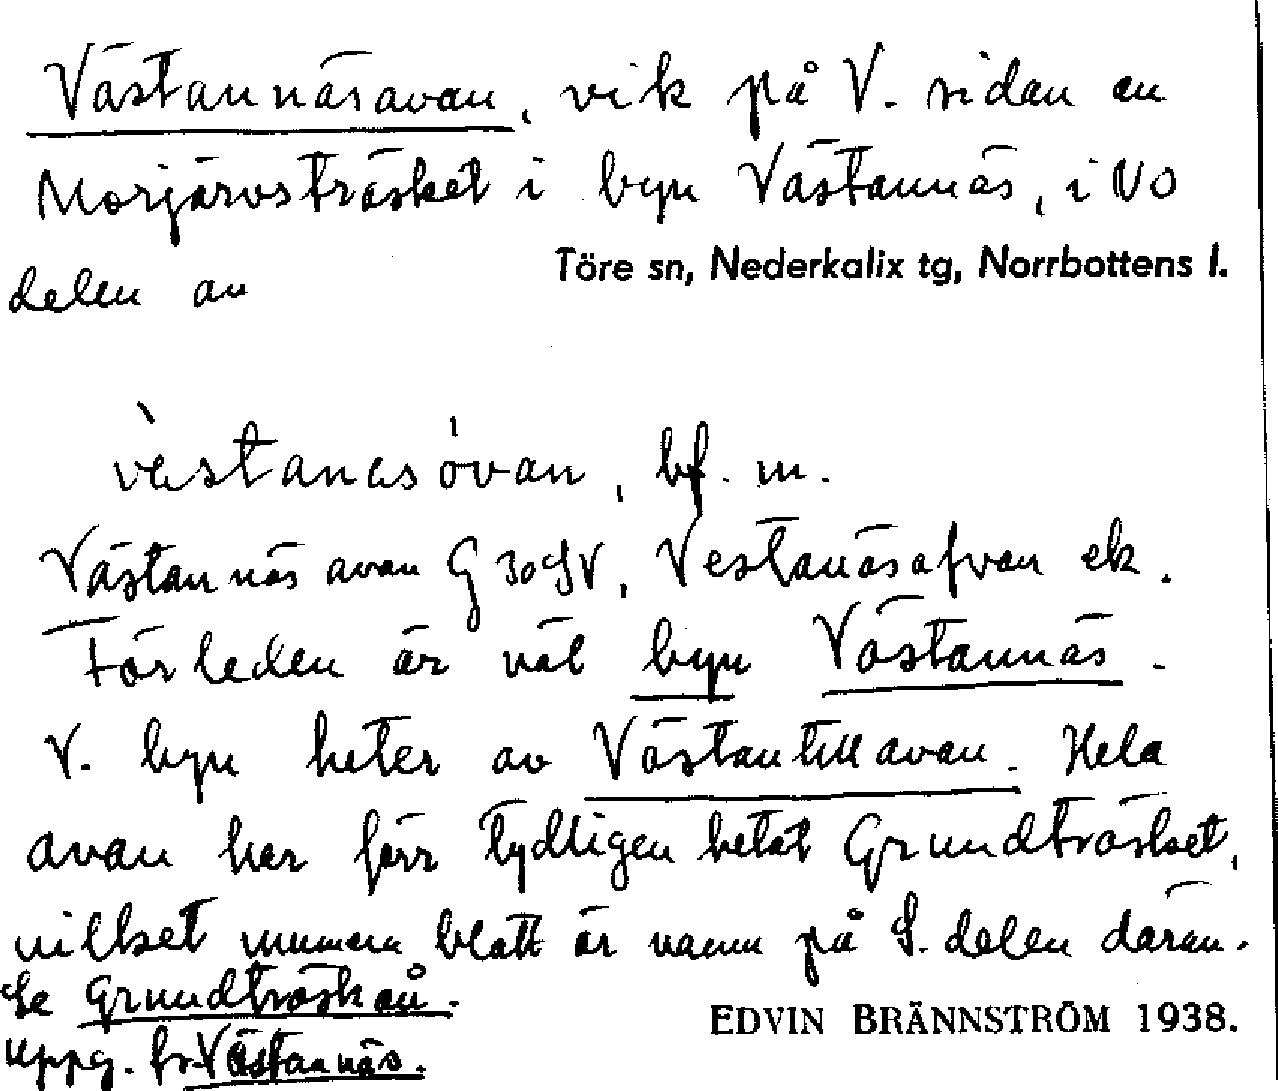 Västannäsavan, vik på V. sidan av
Morjärvsträsket i byn Västannäs, i NO
delen av
Töre sn, Nederkalix tg, Norrbottens l.
bf. m.
Västannäsavan G 30 SV, Vestanäsafvan ek.
Förleden är väl byn Västannäs.
V. byn heter av Västantillavan. Hela
avan har förr tydligen hetat Grundträsket,
vilket numera blott är namn på S. delen därav.
Se Grundträskån.
Uppg. fr. Västannäs.
EDVIN BRÄNNSTRÖM 1938.